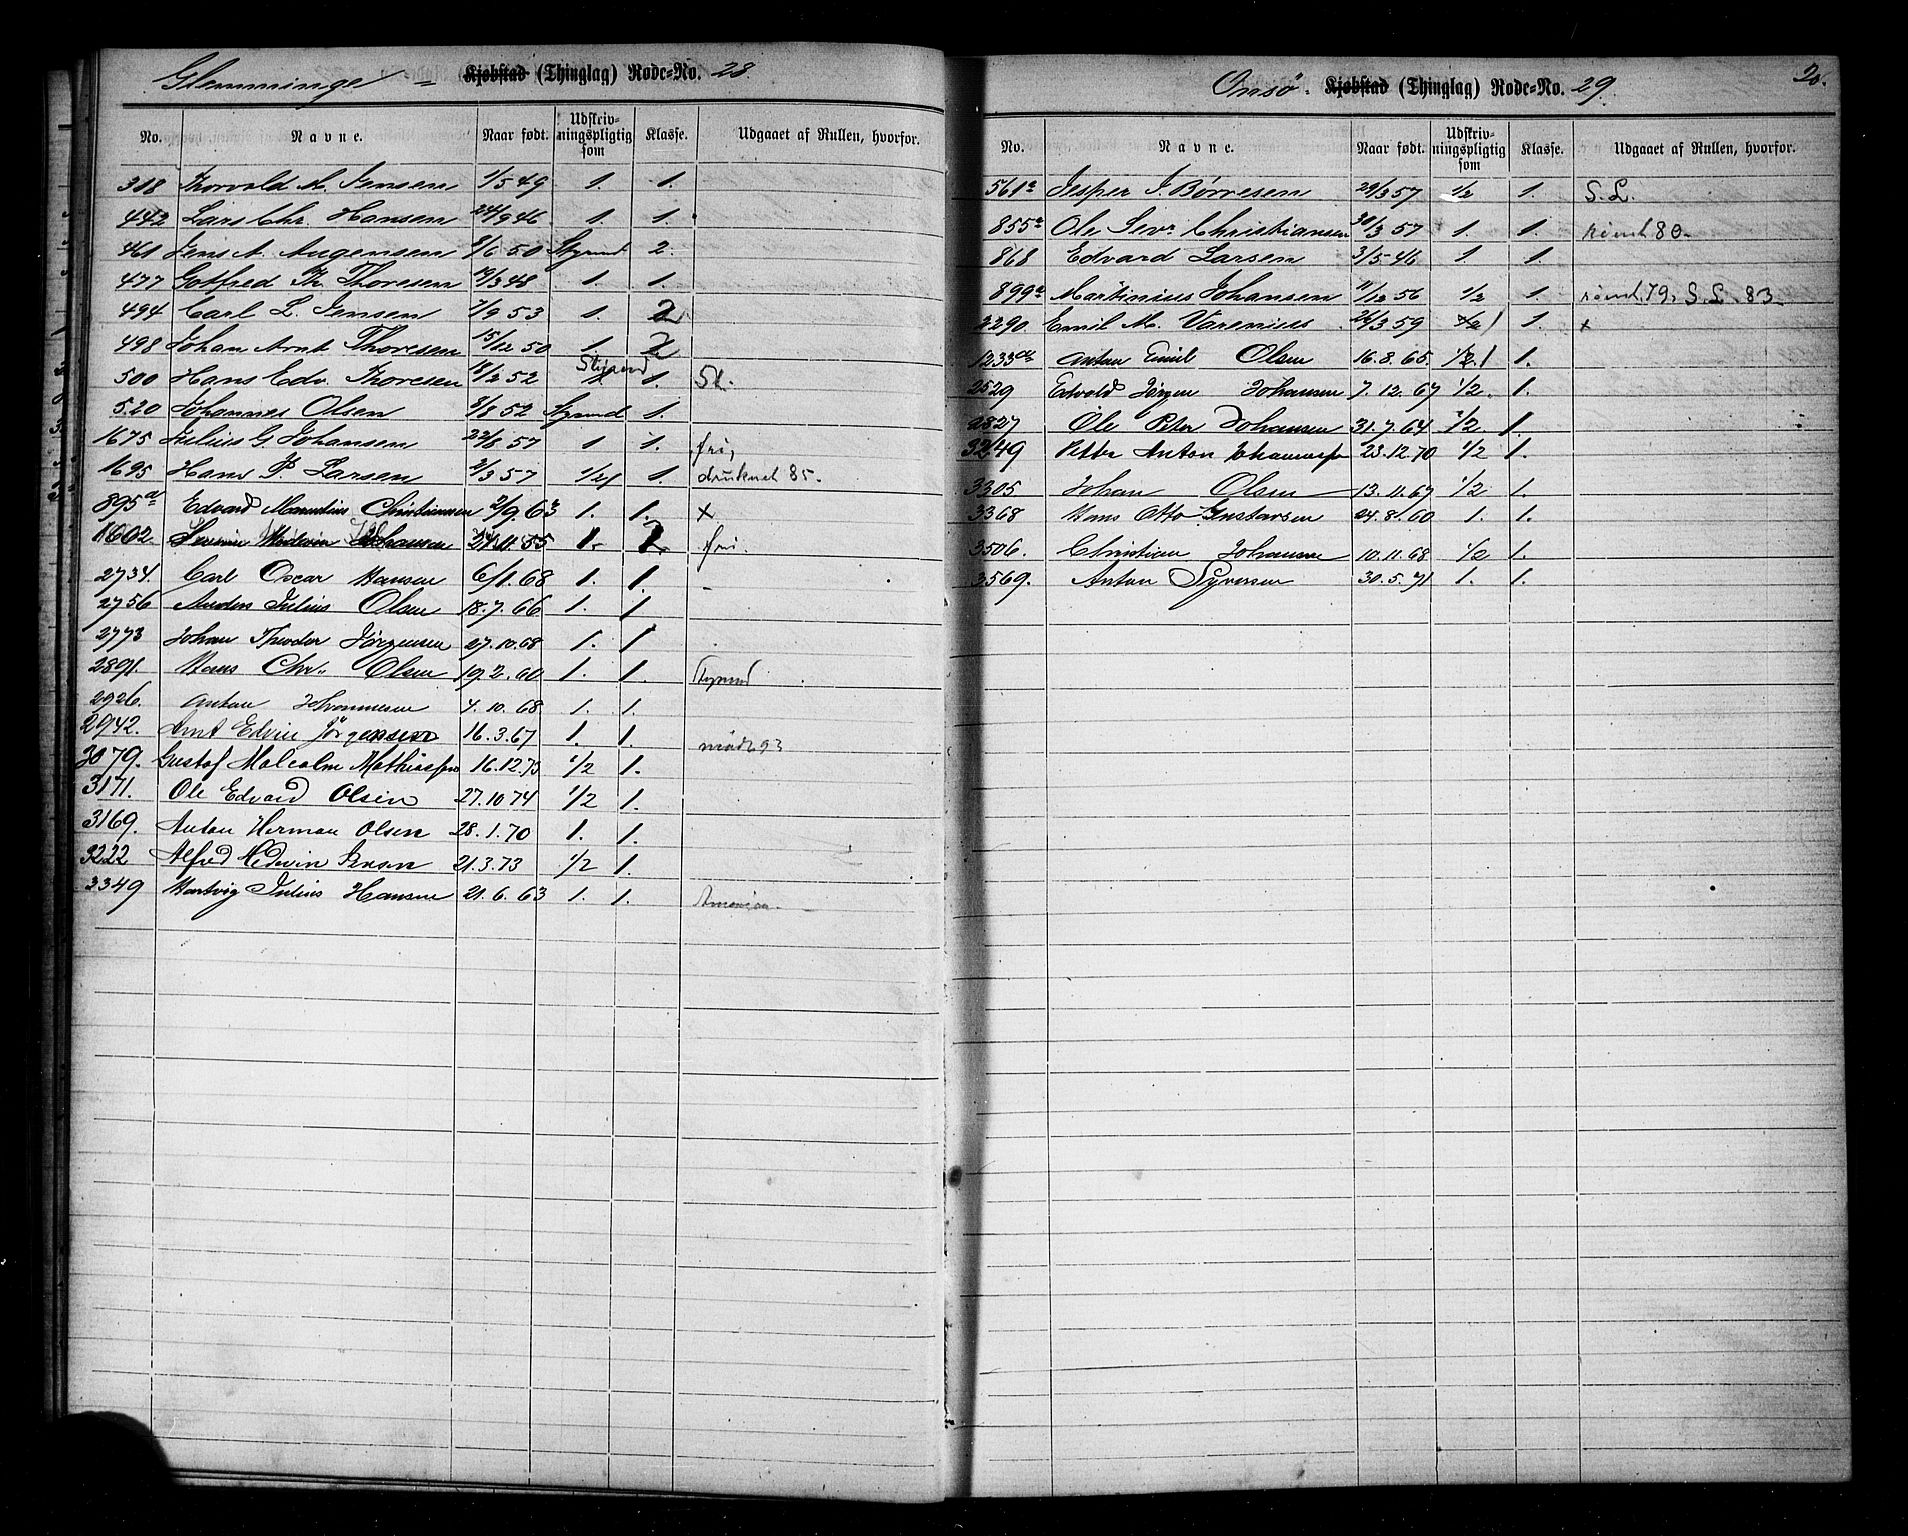 Glemminge – Kjøbstad (Thinglag) Rode-No. 28.
No. Navne. Naar født. Udskrivningspligtig som Klasse. Udgaaet af Rullen, hvorfor.
318 Thorvald M. Jensen 1/5 49 1. 1.
442 Lars Chr. Hansen 24/9 46 1. 1.
461 Jens A. Augensen 9/6 50 Styrmd 2.
477 Gotfred Th. Thoresen 19/3 48 1. 1.
494 Carl L. Jensen 7/9 53 1. 2
498 Johan Arnt Thoresen 15/12 50 1. 2
500 Hans Edv. Thoresen 18/2 52 Styrmd 1. St.
520 Johannes Olsen 8/8 52 Styrmd 1.
1675 Julius G. Johansen 23/8 57 1 1. fri,
1695 Hans P. Larsen 2/3 57 1/2/ 1. druknet 85.
895a Edvard Marentius Christiansen 2/9. 63 1. 1. x
1602. Severin Hedevin Johansen 24.11.55 1. 2 fri.
2734. Carl Oscar Hansen 6/1.68 1. 1.
2756 Anders Julius Olsen 18.7.66 1. 1
2773 Johan Theodor Jørgensen 27.10.68 1. 1
2891. Hans Chr. Olsen 19.2.60 1. 1. Styrmd
2926. Anton 4.10.68 1. 1.
2942. Arnt Edvin Jørgensen 16.3.67 1. 1. mødt 93
3079. Gustaf Malcolm Mathiassen 16.12.73 1/2 1.
3171. Ole Edvard Olsen 27.10.74 1/2 1.
3169. Anton Herman Olsen 28.1.70 1. 1.
3222 Alfred Hedevin Jensen 21.3.73 1/2 1.
3349 Hartvig Julius Hansen 21.6.63 1. 1. Amerika.
Onsø. Kjøbstad (Thinglag) Rode-No. 29. 20.
No. Navne. Naar født. Udskrivningspligtig som Klasse. Udgaaet af Rullen, hvorfor.
561a Jesper J. Børresen 29/3 57 1/2 1. S.L.
855a Ole Sevr. Christiansen 30/3 57 1 1. rømt 80.
868 Edvard Larsen 3/5 46 1 1.
899a Martinius Johansen 11/12 56 1/2 1. rømt 79, S.L. 83
2290. Emil M. Varenius 26/3 59 1/2 1 1. x
1233a Anton Emil Olsen 16.8.65. 1/2.1 1.
2529 Edvald Jørgen Johansen 7.12.67 1/2. 1.
2827 Ole Peter Johansen 31.7.64 1/2. 1.
3249 Petter Anton Johannessen 23.12.70 1/2 1.
3305 Johan Olsen 13.11.67 1/2 1.
3368 Hans Otto Gustavsen 24.8.60 1. 1.
3506. Christian Johansen 10.11.68 1/2 1.
3569. Anton Syversen 30.5.71 1. 1.